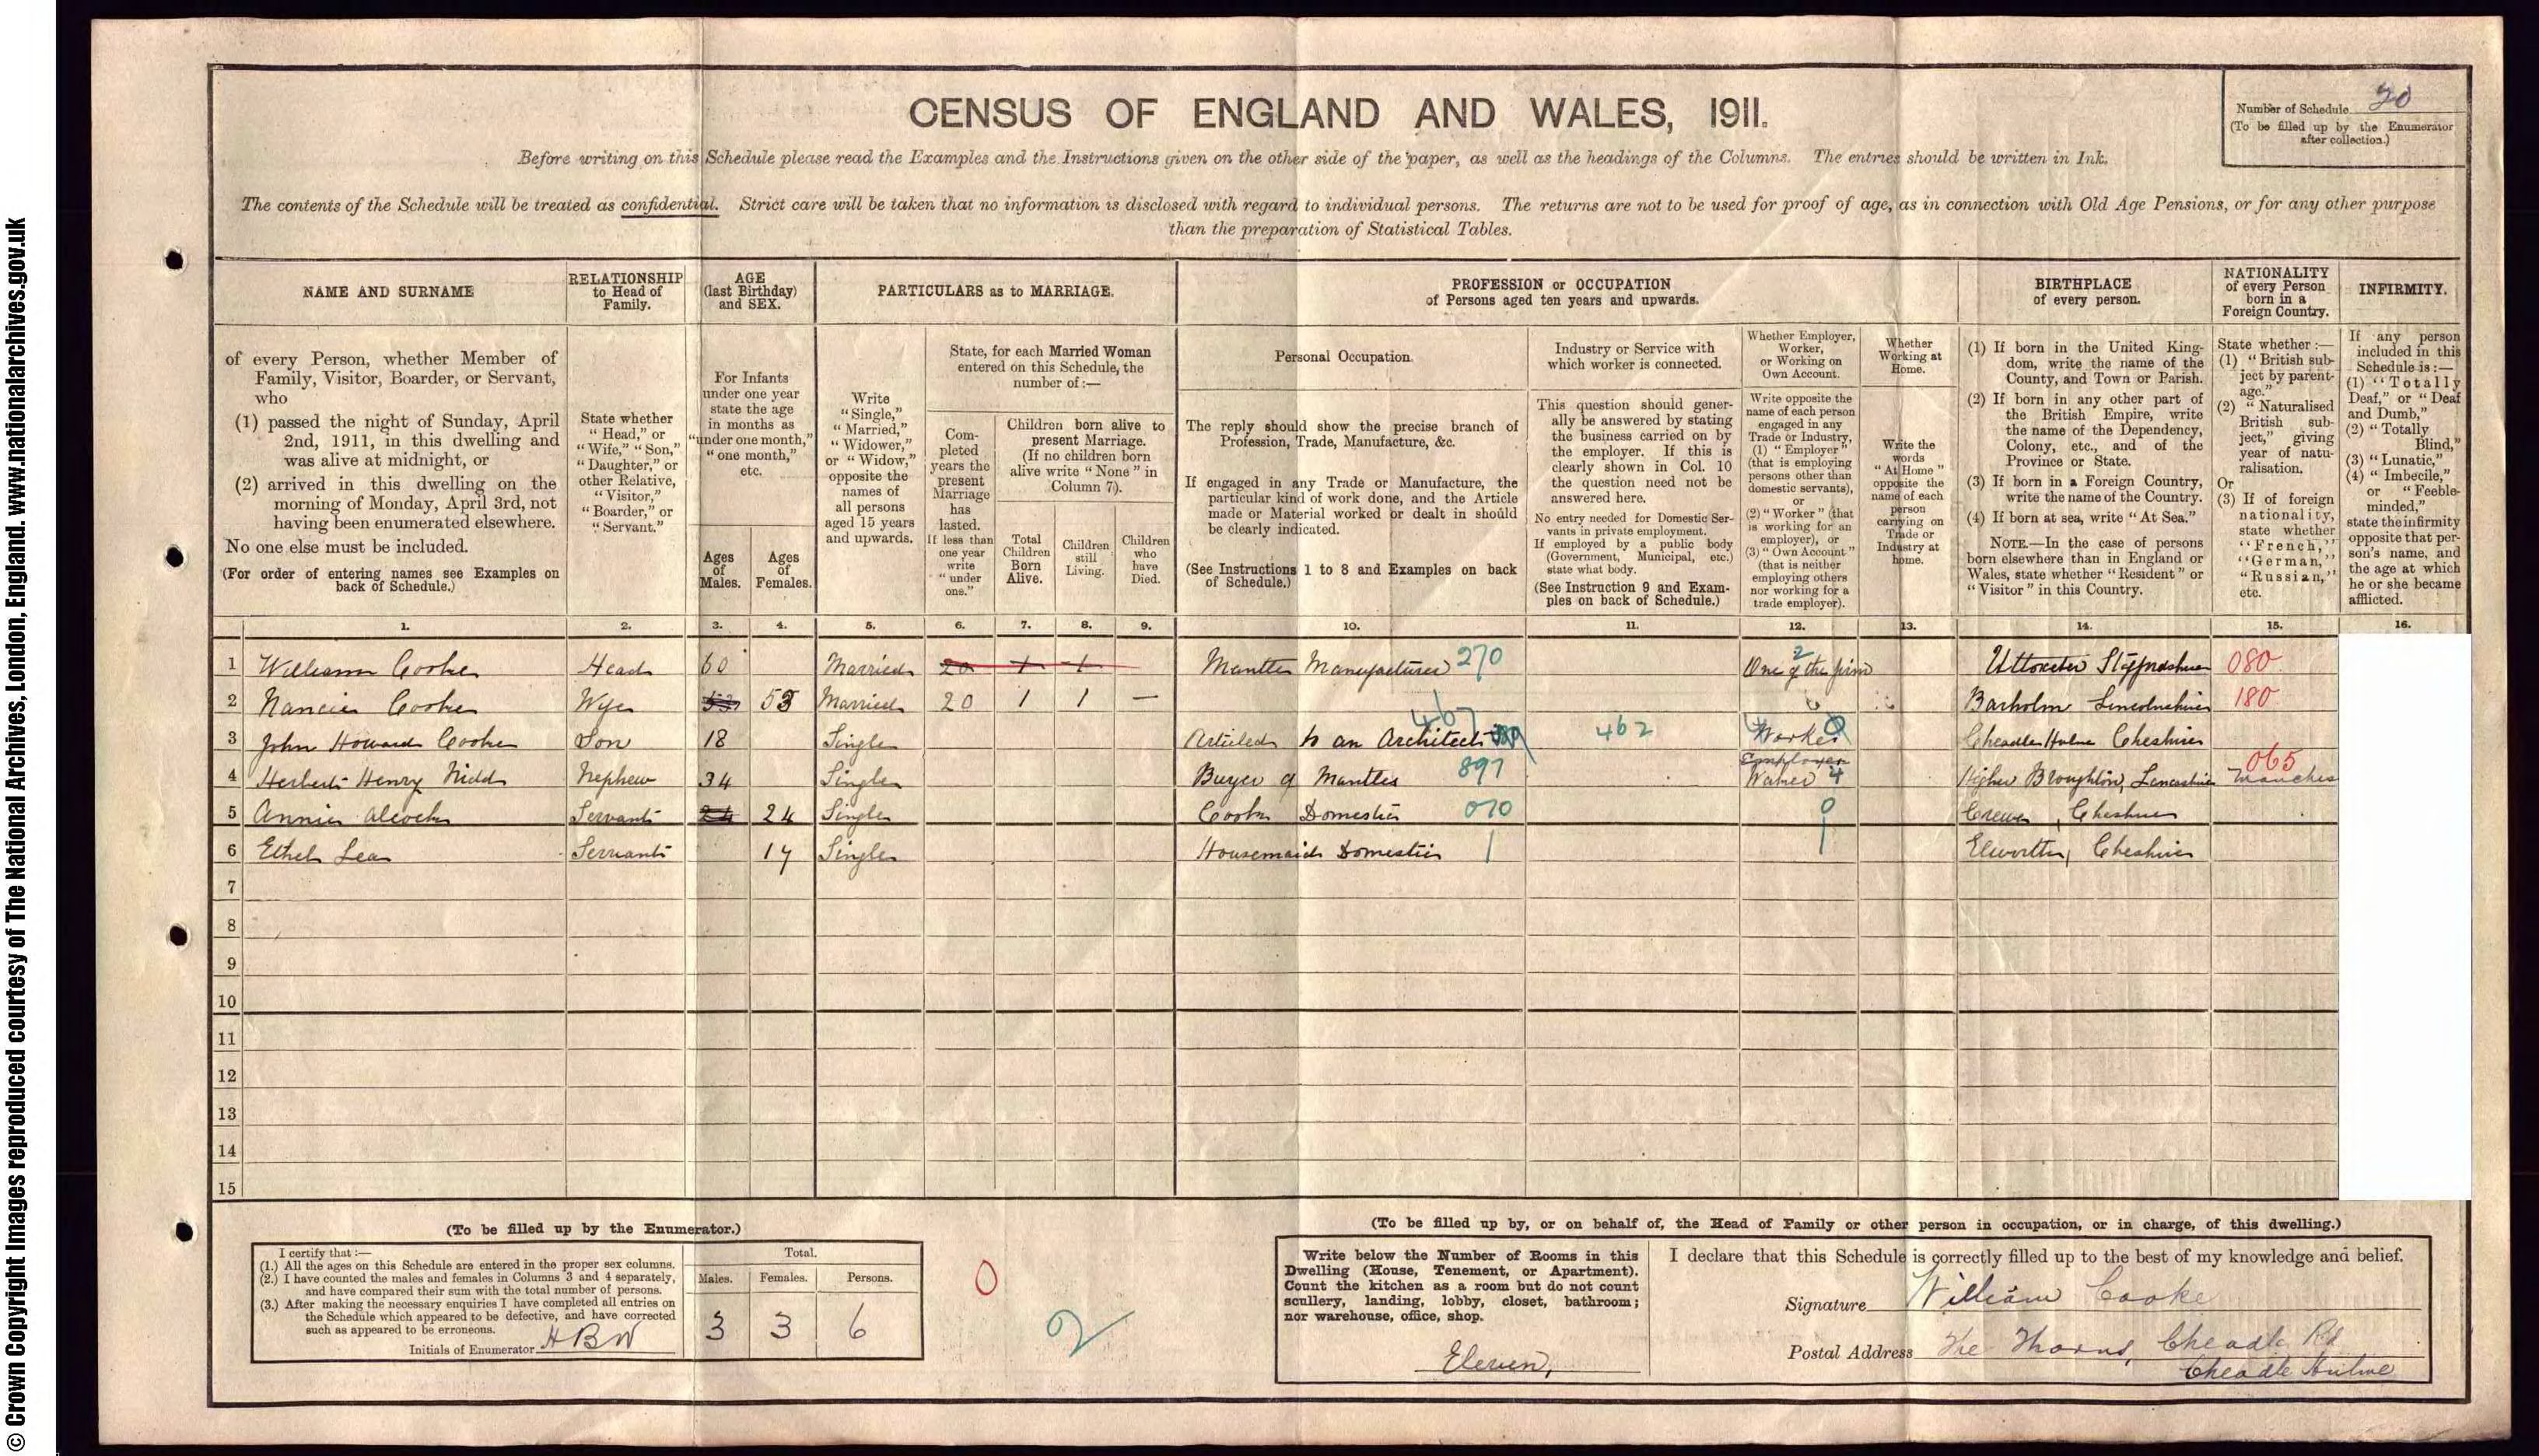 © Crown Copyright Images reproduced courtesy of The National Archives, London, England. www.nationalarchives.gov.uk
CENSUS OF ENGLAND AND WALES, 1911.
Number of Schedule 20
(To be filled up by the Enumerator after collection.)
Before writing on this Schedule please read the Examples and the Instructions given on the other side of the paper, as well as the headings of the Columns. The entries should be written in Ink.
The contents of the Schedule will be treated as confidential. Strict care will be taken that no information is disclosed with regard to individual persons. The returns are not to be used for proof of age, as in connection with Old Age Pensions, or for any other purpose
than the preparation of Statistical Tables.
NAME AND SURNAME
of every Person, whether Member of
Family, Visitor, Boarder, or Servant,
who
(1) passed the night of Sunday, April
2nd, 1911, in this dwelling and
was alive at midnight, or
(2) arrived in this dwelling on the
morning of Monday, April 3rd, not
having been enumerated elsewhere.
No one else must be included.
(For order of entering names see Examples on
back of Schedule.)
RELATIONSHIP
to Head of
Family.
State whether
"Head," or
"Wife," "Son,"
"Daughter," or
other Relative,
"Visitor,"
"Boarder," or
"Servant."
AGE
(last Birthday)
and SEX.
For Infants
under one year
state the age
in months as
"under one month,"
"one month,"
etc.
Ages
of
Males.
Ages
of
Females.
PARTICULARS as to MARRIAGE.
Write
"Single,"
"Married,"
"Widower,"
or "Widow,"
opposite the
names of
all persons
aged 15 years
and upwards.
State, for each Married Woman
entered on this Schedule, the
number of :—
Com-
pleted
years the
present
Marriage
has
lasted.
If less than
one year
write
"under
one."
Children born alive to
present Marriage.
(If no children born
alive write "None" in
Column 7).
Total
Children
Born
Alive.
Children
still
Living.
Children
who
have
Died.
PROFESSION or OCCUPATION
of Persons aged ten years and upwards.
Personal Occupation.
The reply should show the precise branch of
Profession, Trade, Manufacture, &c.
If engaged in any Trade or Manufacture, the
particular kind of work done, and the Article
made or Material worked or dealt in should
be clearly indicated.
(See Instructions 1 to 8 and Examples on back
of Schedule.)
Industry or Service with
which worker is connected.
This question should gener-
ally be answered by stating
the business carried on by
the employer. If this is
clearly shown in Col. 10
the question need not be
answered here.
No entry needed for Domestic Ser-
vants in private employment.
If employed by a public body
(Government, Municipal, etc.)
state what body.
(See Instruction 9 and Exam-
ples on back of Schedule.)
Whether Employer,
Worker,
or Working on
Own Account.
Write opposite the
name of each person
engaged in any
Trade or Industry,
(1) "Employer"
(that is employing
persons other than
domestic servants),
or
(2) "Worker" (that
is working for an
employer), or
(3) "Own Account"
(that is neither
employing others
nor working for a
trade employer).
Whether
Working at
Home.
Write the
words
"At Home"
opposite the
name of each
person
carrying on
Trade or
Industry at
home.
BIRTHPLACE
of every person.
(1) If born in the United King-
dom, write the name of the
County, and Town or Parish.
(2) If born in any other part of
the British Empire, write
the name of the Dependency,
Colony, etc., and of the
Province or State.
(3) If born in a Foreign Country,
write the name of the Country.
(4) If born at sea, write "At Sea."
NOTE.—In the case of persons
born elsewhere than in England or
Wales, state whether "Resident" or
"Visitor" in this Country.
NATIONALITY
of every Person
born in a
Foreign Country.
State whether :—
(1) "British sub-
ject by parent-
age."
(2) "Naturalised
British sub-
ject," giving
year of natu-
ralisation.
Or
(3) If of foreign
nationality,
state whether
"French,"
"German,"
"Russian,"
etc.
INFIRMITY.
If any person
included in this
Schedule is :—
(1) "Totally
Deaf," or "Deaf
and Dumb,"
(2) "Totally
Blind,"
(3) "Lunatic,"
(4) "Imbecile,"
or "Feeble-
minded,"
state the infirmity
opposite that per-
son's name, and
the age at which
he or she became
afflicted.
1. 2. 3. 4. 5. 6. 7. 8. 9. 10. 11. 12. 13. 14. 15. 16.
1 William Cooke Head 60 Married 20 1 1 Mantle Manufacturer 270 2 One of the firm Uttoxeter Staffordshire 080
2 Nancie Cooke Wife 53 Married 20 1 1 — Barholm Lincolnshire 180
3 John Howard Cooke Son 18 Single Articled to an Architect 467 462 Worker Cheadle Hulme Cheshire
4 Herbert Henry Nidd Nephew 34 Single Buyer of Mantles 897 Employer 4 Higher Broughton, Lancashire 065 Manches
5 Annie Alcock Servant 24 24 Single Cook Domestic 070 0 Crewe, Cheshire
6 Ethel Lea Servant 17 Single Housemaid Domestic Elworth, Cheshire
7
8
9
10
11
12
13
14
15
(To be filled up by the Enumerator.)
I certify that :—
(1.) All the ages on this Schedule are entered in the proper sex columns.
(2.) I have counted the males and females in Columns 3 and 4 separately,
and have compared their sum with the total number of persons.
(3.) After making the necessary enquiries I have completed all entries on
the Schedule which appeared to be defective, and have corrected
such as appeared to be erroneous.
Initials of Enumerator HBW
Total.
Males. Females. Persons.
3 3 6
0
2
(To be filled up by, or on behalf of, the Head of Family or other person in occupation, or in charge, of this dwelling.)
Write below the Number of Rooms in this
Dwelling (House, Tenement, or Apartment).
Count the kitchen as a room but do not count
scullery, landing, lobby, closet, bathroom;
nor warehouse, office, shop.
Eleven,
I declare that this Schedule is correctly filled up to the best of my knowledge and belief.
Signature William Cooke
Postal Address The Thorns, Cheadle Rd
Cheadle Hulme